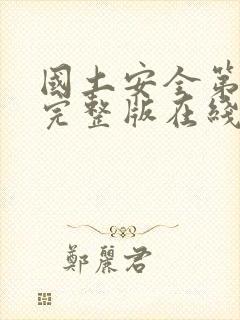 國土安全第
完整版在綫
鄭麗君